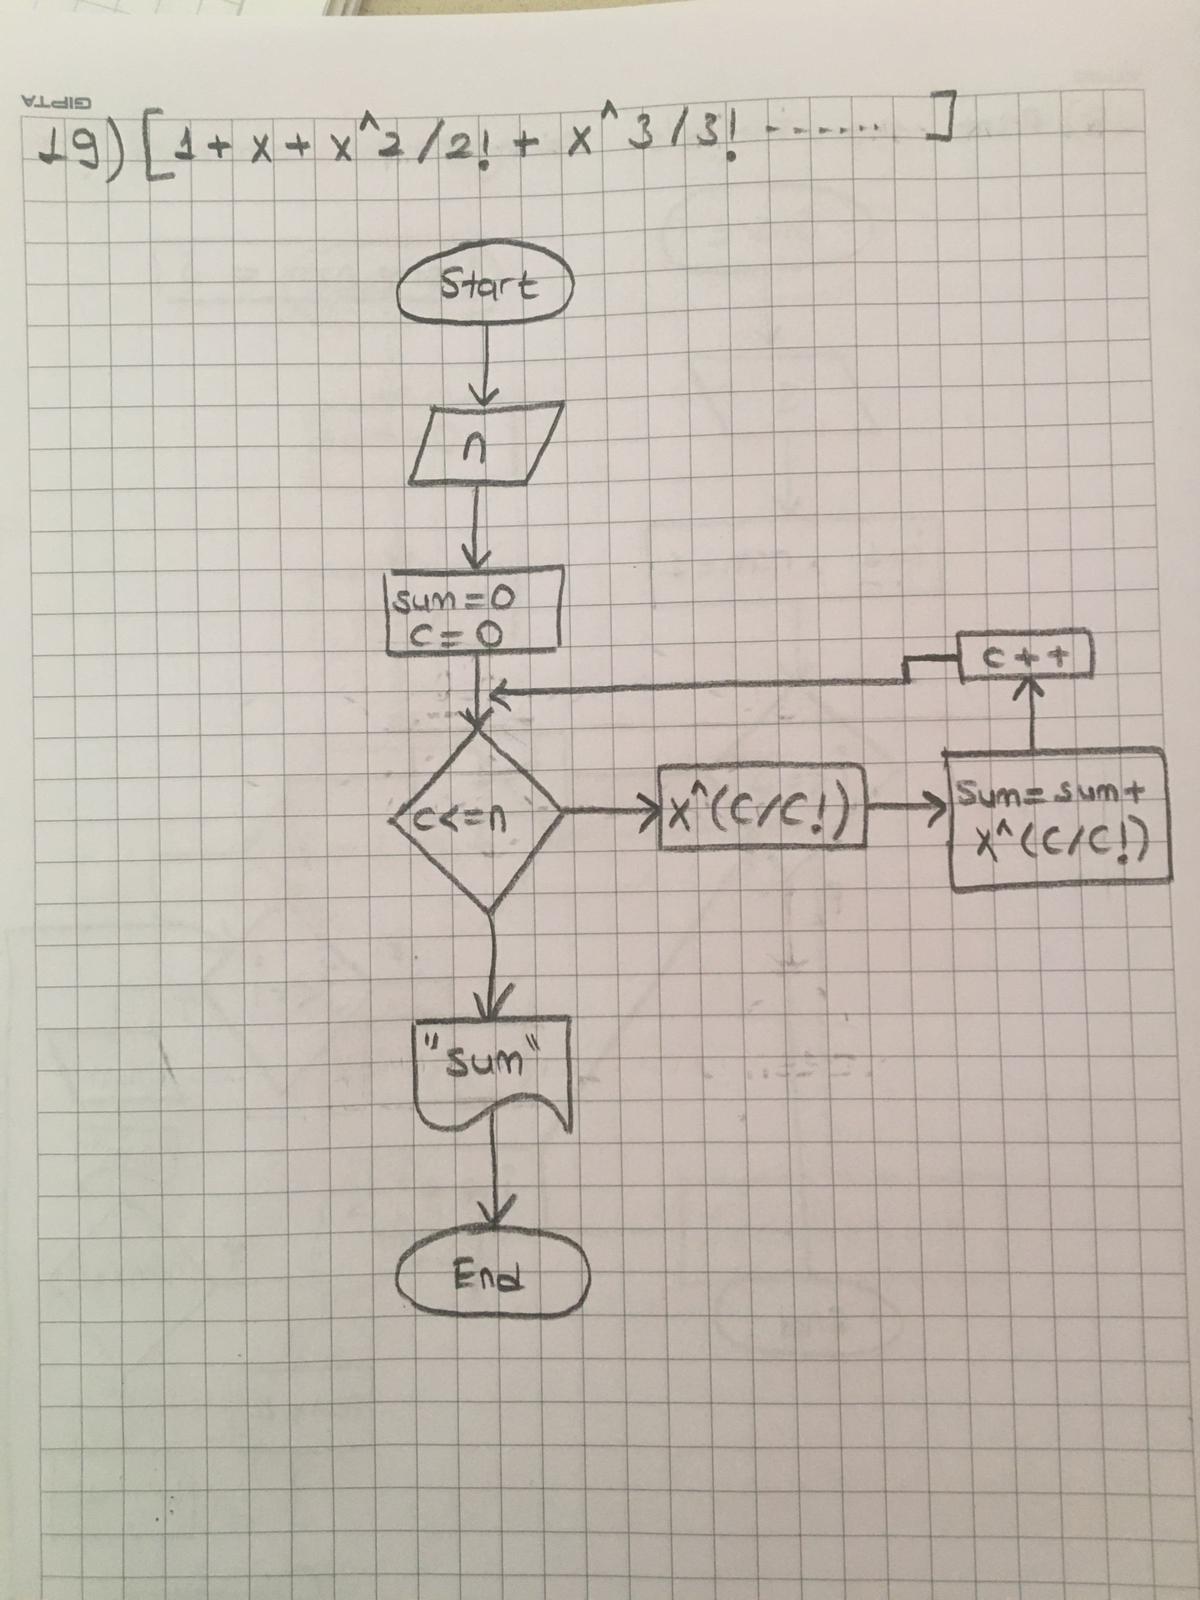 GIPTA
19) [1 + x + x^2/2! + x^3/3! ------- ]
Start
n
sum = 0
c = 0
c++
c<=n
x^(c/c!)
sum = sum +
x^(c/c!)
"sum"
End